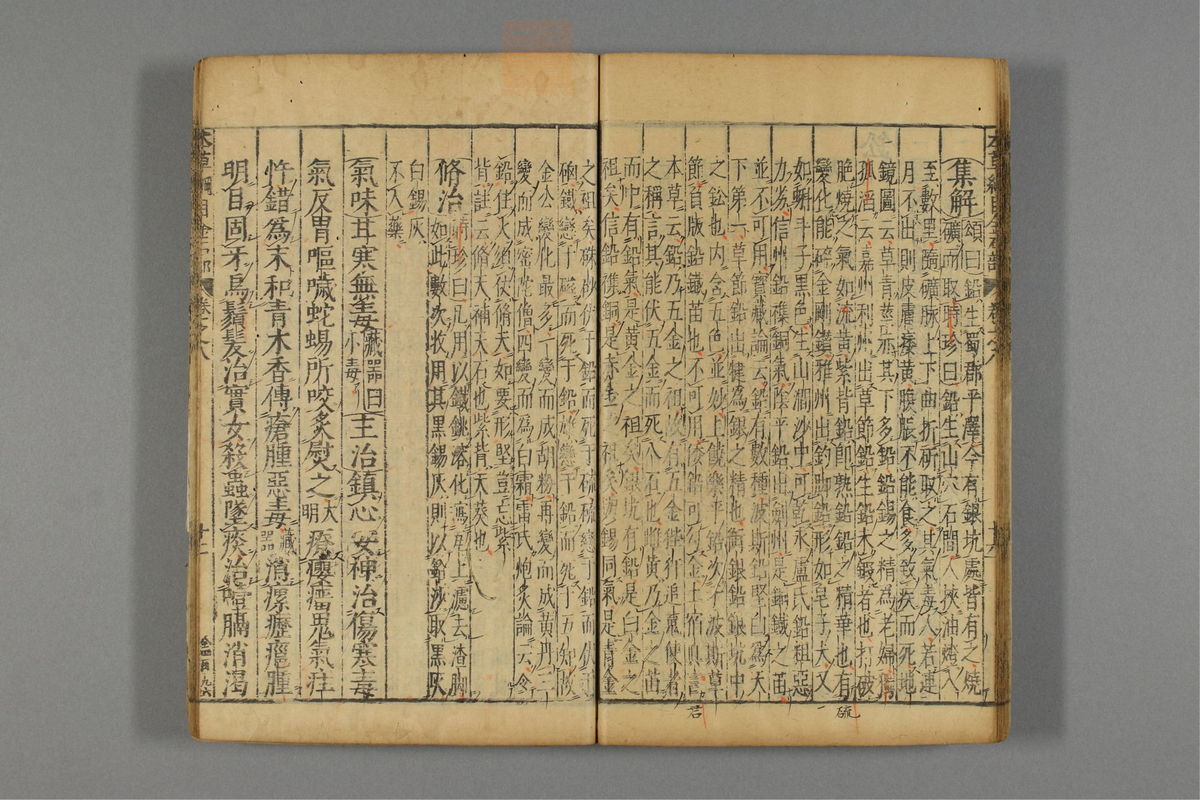 集解頌曰鉛生蜀郡平澤今有銀坑處皆有之燒
礦而取時珍曰鉛生山穴石間人挾油燈入
至數里隨礦脉上下曲折斫取之其氣毒人若連
月不出則皮膚痿黃腹脹不能食多致疾而死地
鏡圖云草青莖赤其下多鉛鉛錫之精為老婦獨
孤滔云嘉州利州出草節鉛生鉛未鍛者也打破
脆燒之氣如流黃紫背鉛卽熟鉛鉛之精華也有
變化能碎金剛鑽雅州出釣脚鉛形如皂子大又
如蝌蚪子黑色生山澗沙中可乾汞盧氏鉛粗惡
力劣信州鉛襍銅氣陰平鉛出劍州是銅鐵之苗
並不可用寶藏論云鉛有數種波斯鉛堅白為天
下第一草節鉛出犍為銀之精也銜銀鉛銀坑中
之鉛也內含五色並妙上饒樂平鉛次于波斯草
節負版鉛鐵苗也不可用倭鉛可勾金土宿真
本草云鉛乃五金之祖故有五金狴犴追魂使者
之稱言其能伏五金而死八石也雌黃乃金之苗
而中有鉛氣是黃金之祖矣銀坑有鉛是白金之
祖矣信鉛襍銅是赤金之祖矣與錫同氣是青金
之祖矣硃砂伏于鉛而死于硫硫戀于鉛而伏于
硇鐵戀于磁而死于鉛雄戀于鉛而死于五加故
金公變化最多一變而成胡粉再變而成黃丹三
變而成密陀僧四變而為白霜雷氏炮炙論云令
鉛住火須仗脩天如要形堅豈忘紫
背註云脩天補天石也紫背天葵也
脩治時珍曰凡用以鐵銚溶化瀉瓦上濾去渣脚
如此數次收用其黑錫灰則以鉛沙取黑灰
白錫灰
不入藥
氣味甘寒無毒藏器曰小毒主治鎮心安神治傷寒毒
氣反胃嘔噦蛇蜴所咬炙熨之大明療癭瘤鬼氣疰
忤錯為末和青木香傅瘡腫惡毒藏器消瘰癧癰腫
明目固牙烏鬚髮治實女殺蟲墜痰治噎膈消渴
本草綱目金石部
卷之八
硫
君